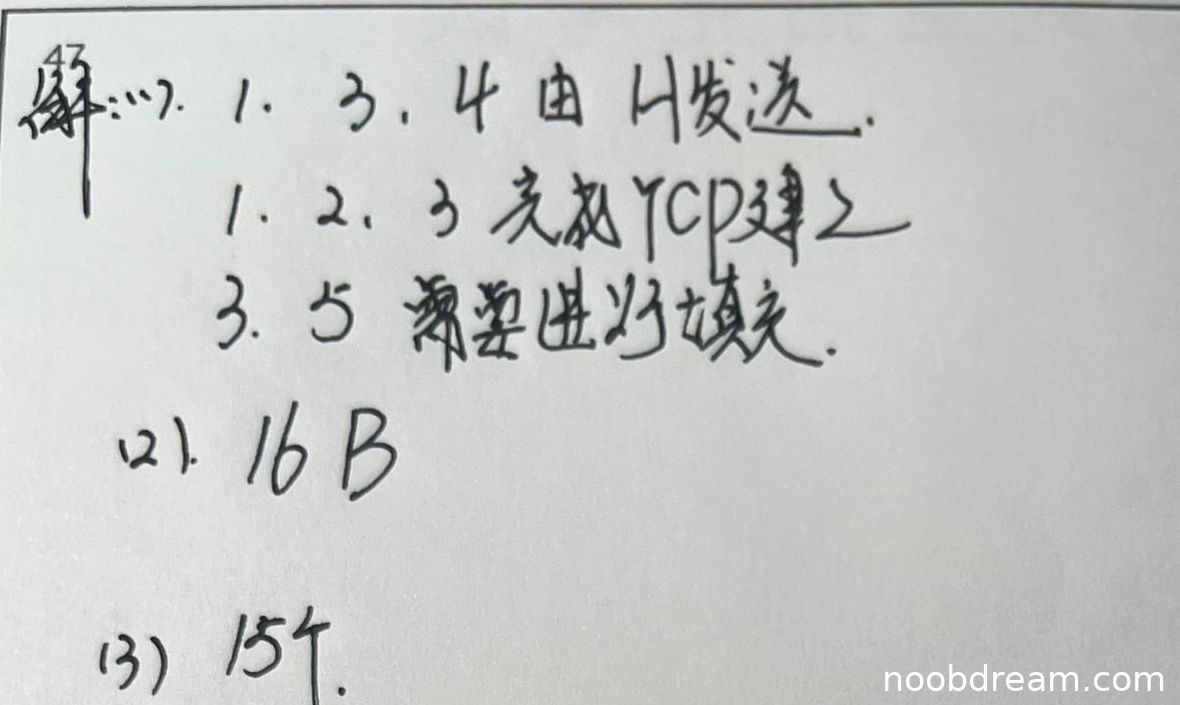 47
解:(1). 1. 3. 4 由 H发送.
1. 2. 3 完成TCP建立
3. 5 需要进行填充.
(2). 16 B
(3) 15个.
noobdream.com